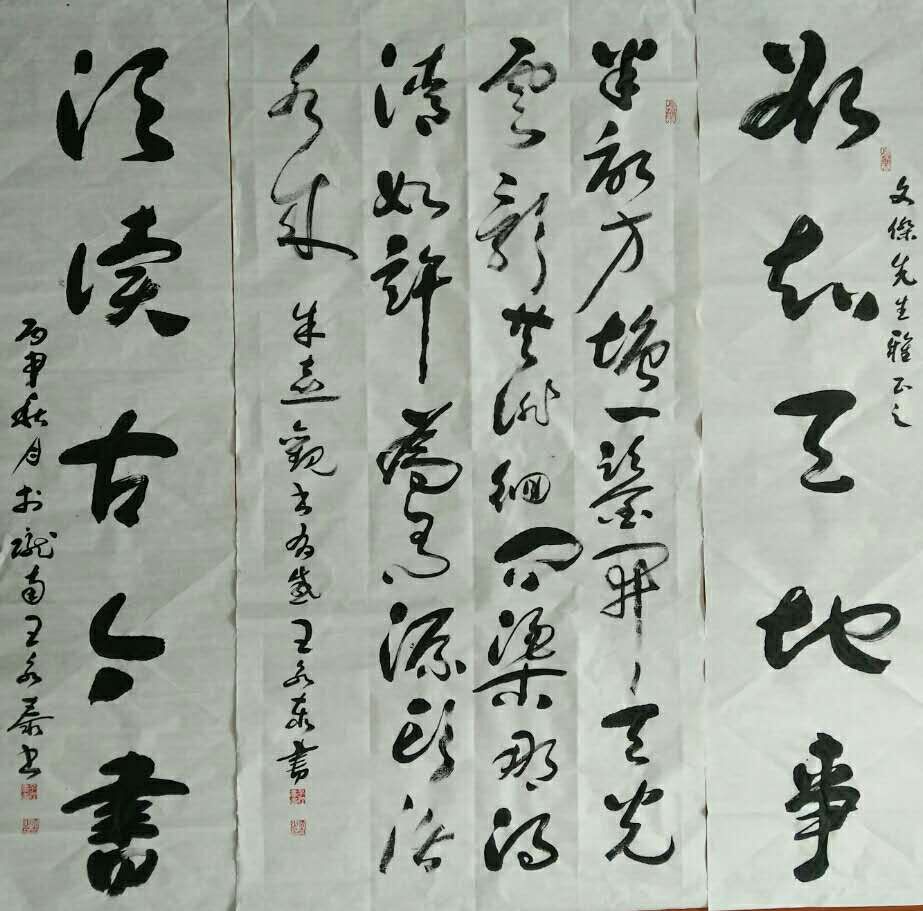 文傑先生雅正之
欲知天地事
半畝方塘一鑒開天光
雲影共徘徊問渠那得
清如許為有源頭活
水來 朱熹觀书有感王永泰書
須讀古今書
丙申秋月於隴南王永泰书